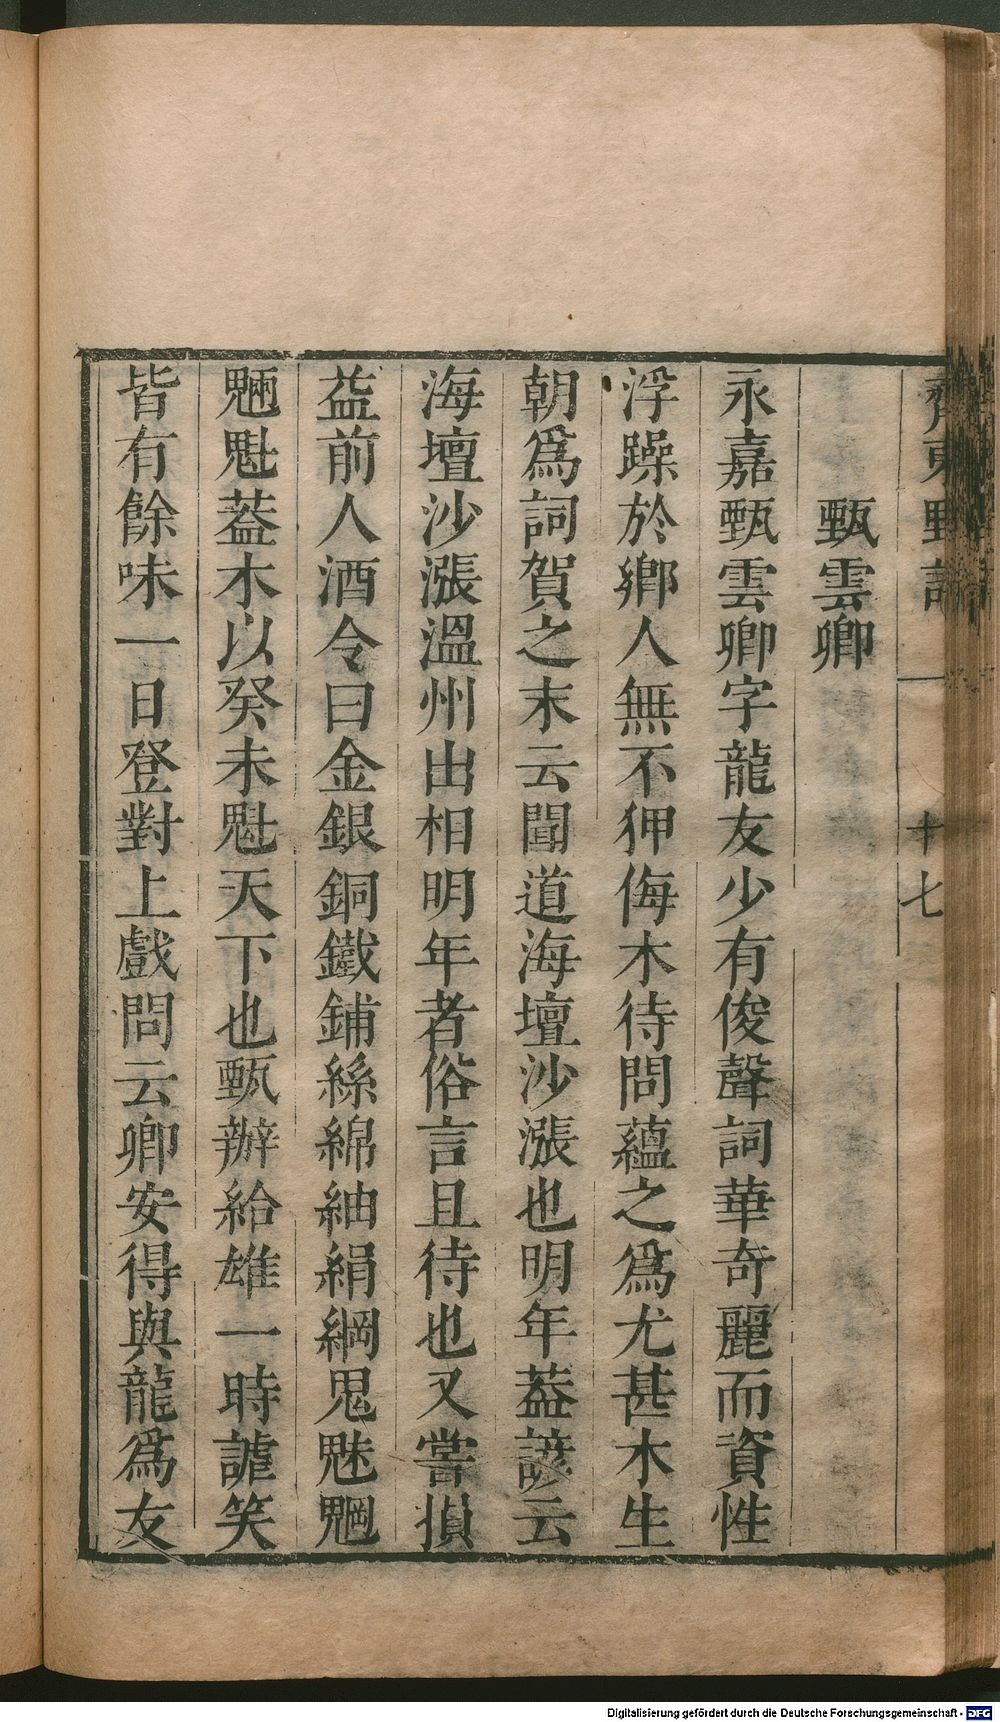 齊東野語
十七
甄雲卿
永嘉甄雲卿字龍友少有俊聲詞華奇麗而資性
浮躁於鄉人無不狎侮木待問蘊之爲尤甚木生
朝爲詞賀之末云聞道海壇沙漲也明年葢諺云
海壇沙漲溫州出相明年者俗言且待也又嘗損
益前人酒令曰金銀銅鐵鋪絲綿紬絹綱鬼魅魍
魎魁葢木以癸未魁天下也甄辦給雄一時謔笑
皆有餘味一日登對上戲問云卿安得與龍爲友
Digitalisierung gefördert durch die Deutsche Forschungsgemeinschaft - DFG